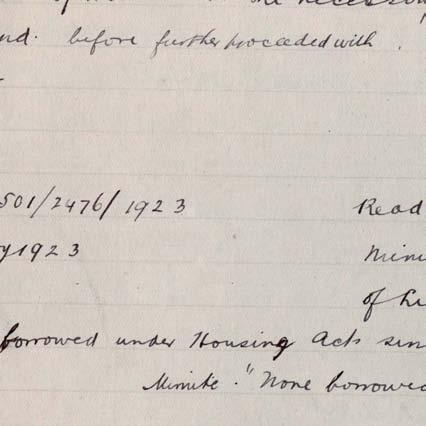 the necessary
nd. before further proceeded with.
501/2476/1923 Read
y 1923
of
borrowed under Housing Acts sin
Minute. "None borrowed